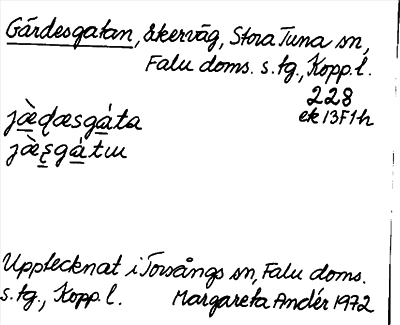 Gårdesgatan, åkerväg, Stora Tuna sn,
Falu doms. s.tg., Kopp.l.
228
ek 13F1h
jæ̀ɖæsgáta
jæ̀ȿgátɯ
Upptecknat i Torsångs sn, Falu doms.
s.tg., Kopp.l. Margareta Andér 1972